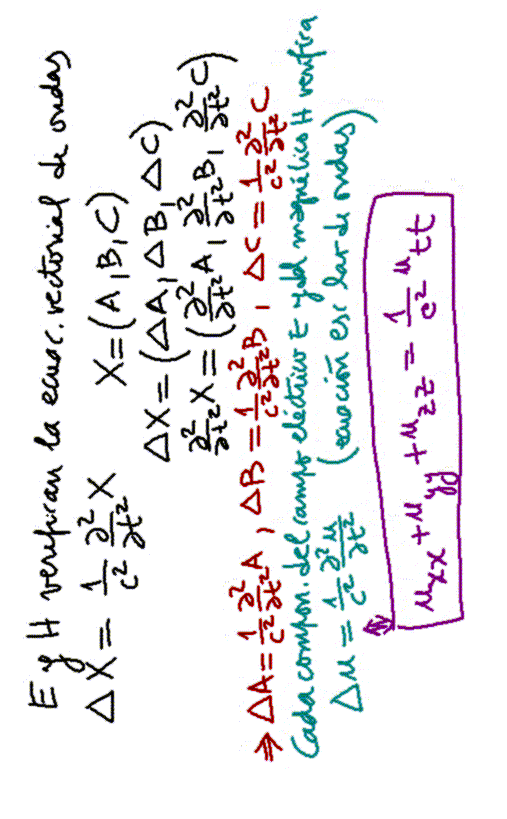 E y H verifican la ecuac. vectorial de ondas
ΔX = 1/c² ∂²/∂t² X    X = (A, B, C)
ΔX = (ΔA, ΔB, ΔC)
∂²/∂t² X = (∂²/∂t² A, ∂²/∂t² B, ∂²/∂t² C)
⇒ ΔA = 1/c² ∂²/∂t² A, ΔB = 1/c² ∂²/∂t² B, ΔC = 1/c² ∂²/∂t² C
Cada compon. del campo eléctrico E y del magnético H verifica
Δu = 1/c² ∂²u/∂t² (ecuación escalar de ondas)
⇕
u_xx + u_yy + u_zz = 1/c² u_tt